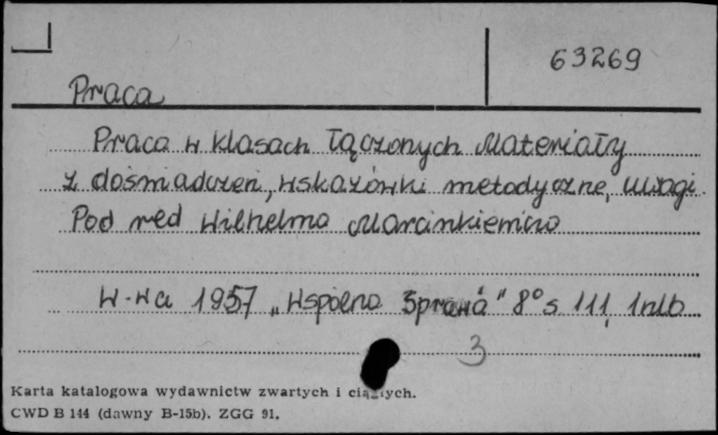 63269
Praca
Praca w klasach łączonych Materiały
z doświadczeń, wskazówki metodyczne, uwagi.
Pod red Wilhelma Marcinkiewicza
W-wa 1957 „Wspólna Sprawa" 8° s 111, 1nlb
3
Karta katalogowa wydawnictw zwartych i ciągłych.
CWD B 144 (dawny B-15b). ZGG 91.